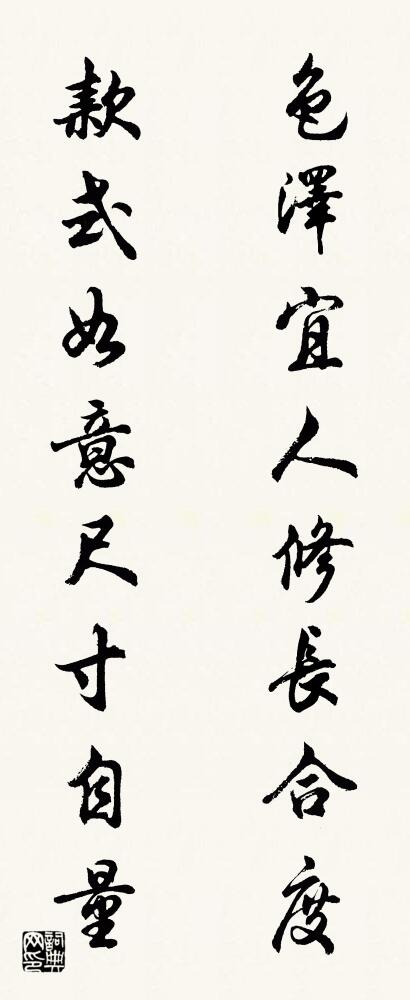 色澤宜人修長合度
款式如意尺寸自量
詞典網印